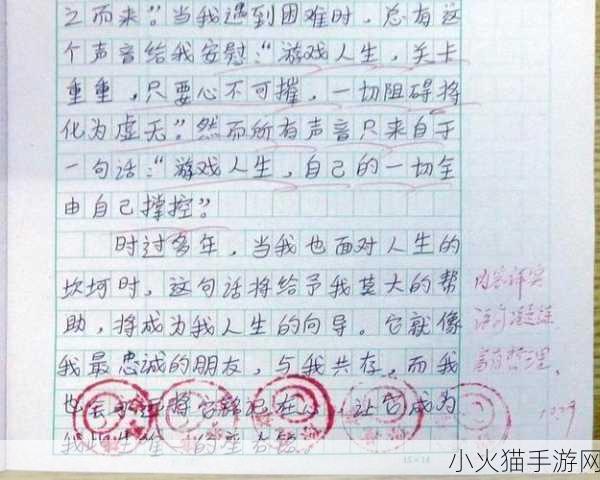 之而来”。当我遇到困难时，总有这
个声音给我安慰：“游戏人生，关卡
重重，只要心不可摧，一切阻碍将
化为虚无”。然而所有声音只来自于
一句话：“游戏人生，自己的一切全
由自己掌控”。
时过多年，当我也面对人生的
坎坷时，这句话将给予我莫大的帮
助，将成为我人生的向导。它就像
我最忠诚的朋友，与我共存。而我
也会永远将它铭记在心，让它成为
我此生唯一的座右铭。
内容详实
语句通连
富有哲理。
小火猫手游网